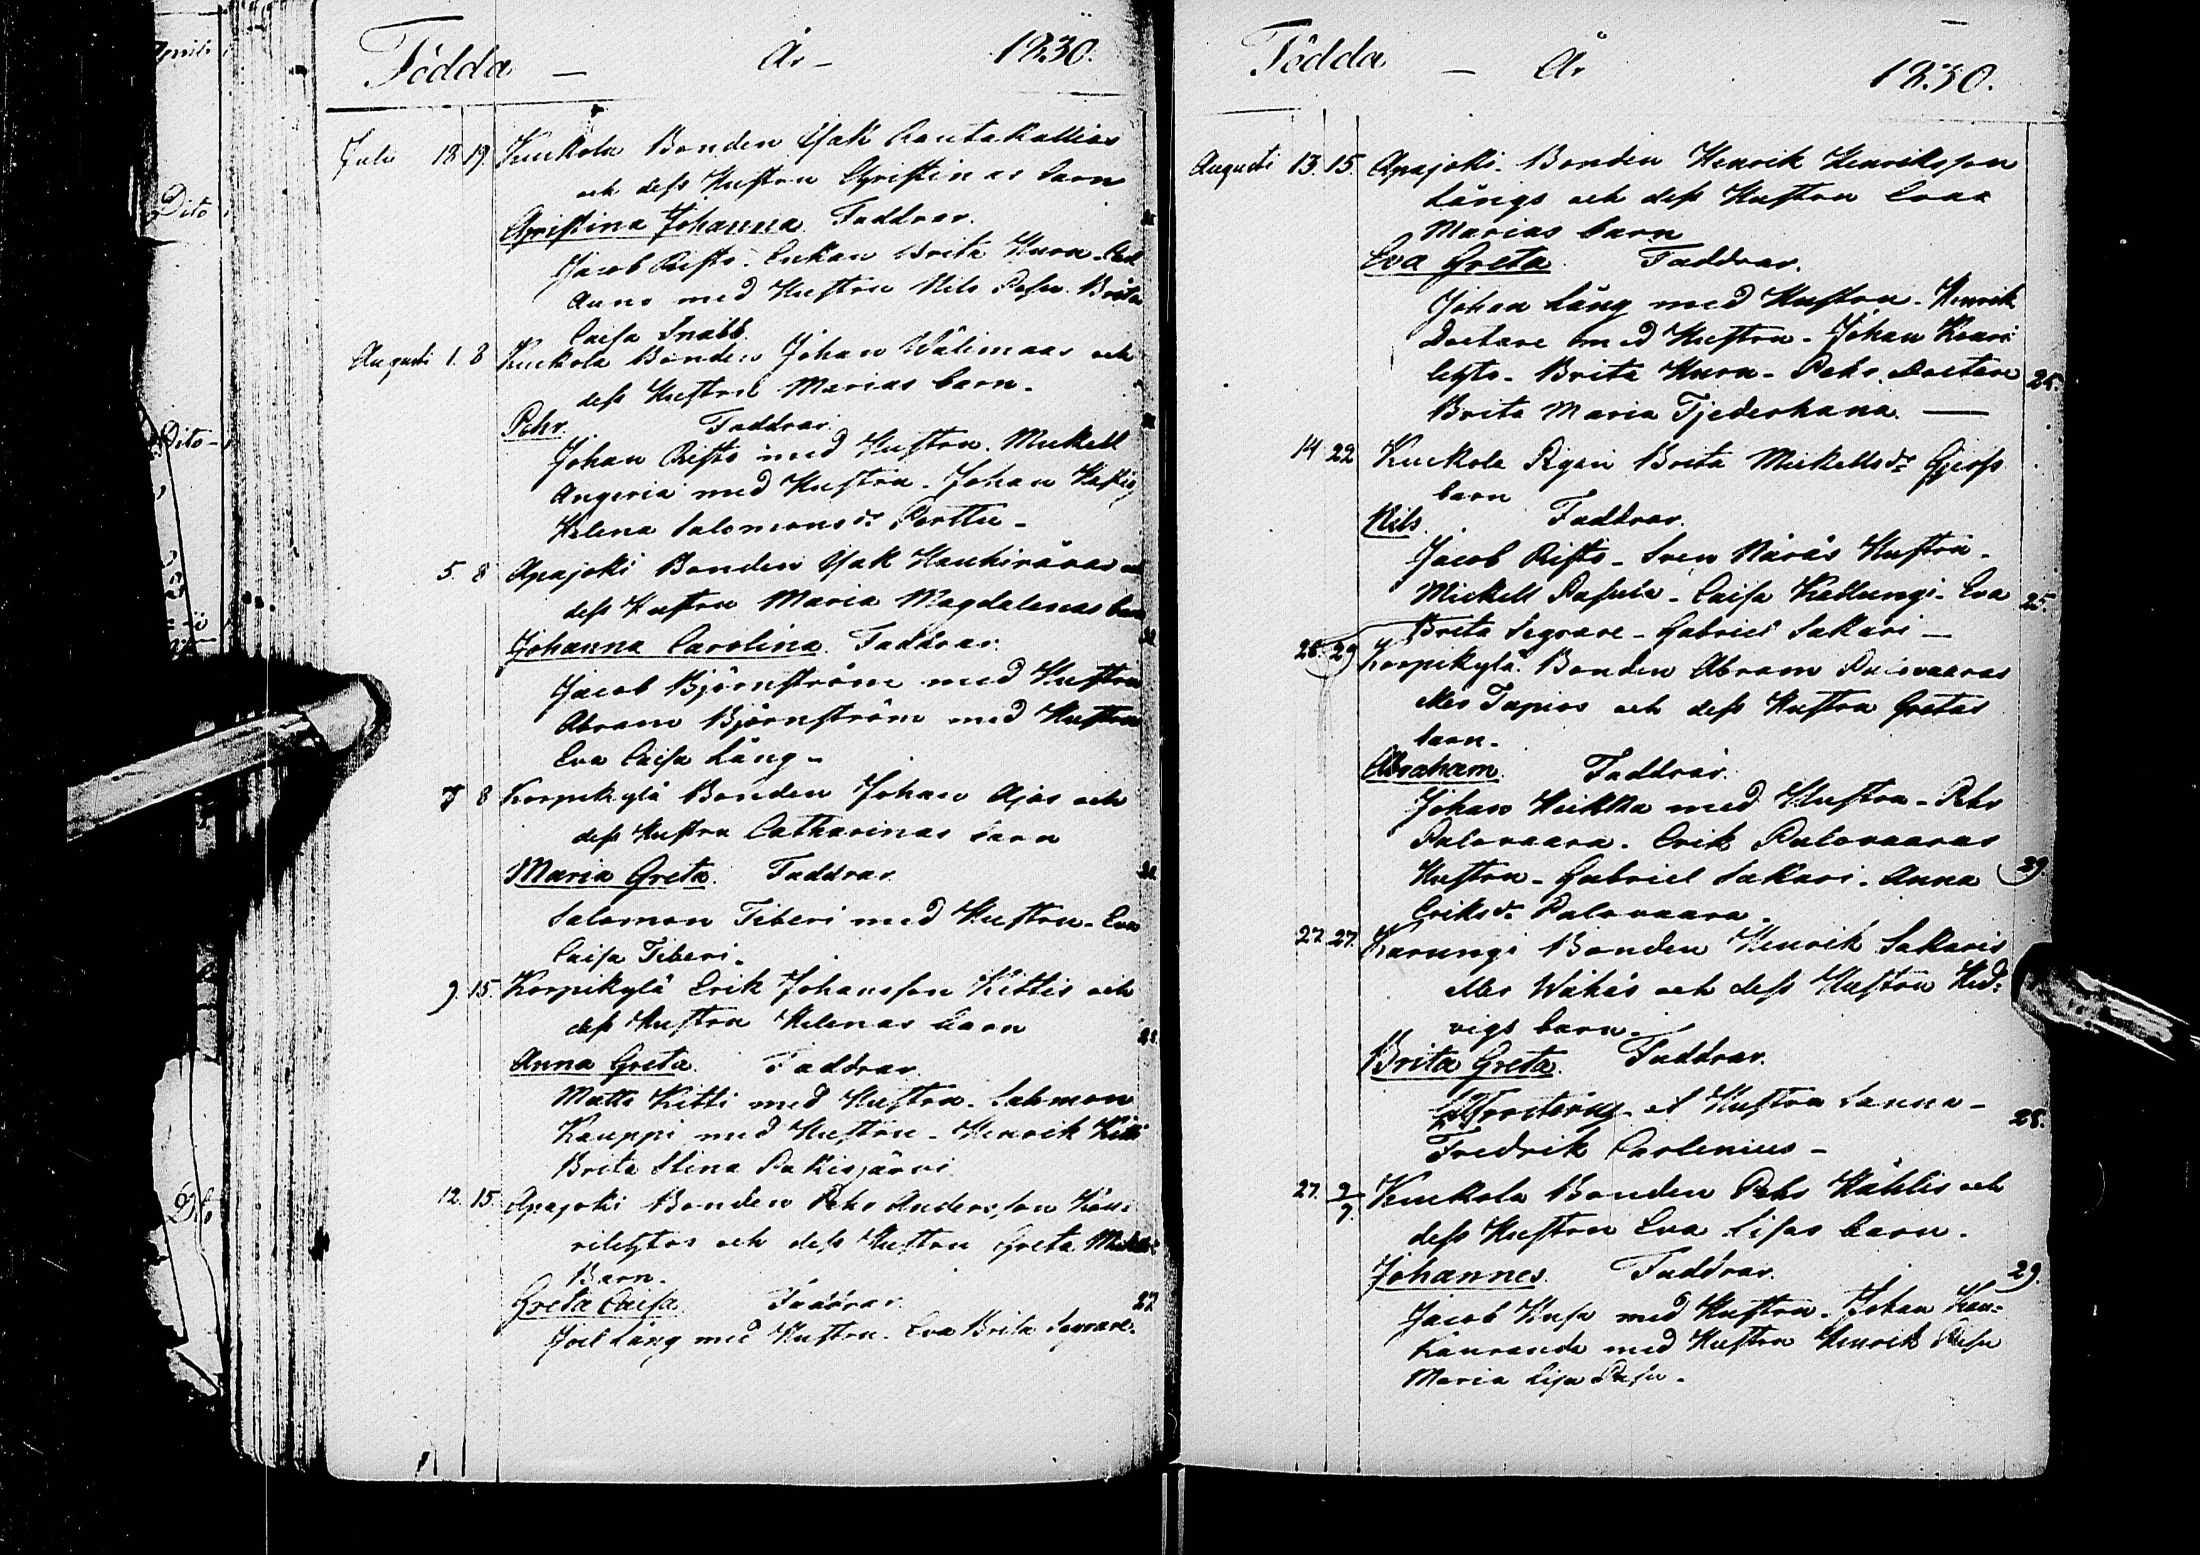 Födda — År — 1830.
Juli 18 19 Kuckola Bonden Isak Rautakallios
och dess Hustru Christinas barn
Christina Johanna. Faddrar.
Jacob Risto. Enkan Brita Kura. Carl
Auno med Hustru Nils Pasu. Brita
Caisa Snabb.
Augusti 1. 8 Kuckola Bonden Johan Wälimaas och
dess Hustru Marias barn.
Pehr. Faddrar.
Johan Risto med Hustru. Mickell
Angeria med Hustru. Johan
Helena Salomonsdr Perttu.
5. 8 Apajoki Bonden Isak Haukiväras
dess Hustru Maria Magdalenas barn
Johanna Carolina. Faddrar.
Jacob Björnström med Hustru
Abram Björnström med Hustru
Eva Caisa Läng.
7 8 Korpikylä Bonden Johan Ajas och
dess Hustru Catharinas barn
Maria Greta. Faddrar.
Salomon Tiberi med Hustru. Eva
Caisa Tiberi.
9. 15. Korpikylä Erik Johansson Kittis och
dess Hustru Helenas barn
Anna Greta. Faddrar.
Matts Kitti med Hustru. Salomon
Kauppi med Hustru. Henrik Kitti
Brita Stina Pakisjärvi
12. 15. Apajoki Bonden Pehr Andersson Kau-
rilehtos och dess Hustru Greta
Barn.
Greta Caisa. Faddrar.
Joel Läng med Hustru. Eva Brita Segrare.
Dito
Dito
Födda — År 1830.
Augusti 13. 15. Apajoki. Bonden Henrik Henriksson
Längs och dess Hustru Eva
Marias barn
Eva Greta. Faddrar.
Johan Läng med Hustru. Henrik
Doctare med Hustru. Johan Kauri
lehto. Brita Kura. Pehr Doctare
Brita Maria Tjederhana. —
14 22 Kuckola Pigan Brita Mickellsdr
barn
Nils. Faddrar.
Jacob Risto. Sven Näräs Hustru.
Mickell Pasula. Caisa Kallungi. Eva
Brita Segrare. Gabriel Sakari —
28. 29 Korpikylä. Bonden Abram Palovaaras
eller Tapios och dess Hustru Gretas
barn.
Abraham. Faddrar.
Johan Hickka med Hustru. Pehr
Palovaara. Erik Palovaaras
Hustru. Gabriel Sakari. Anna
Eriksdr Palovaara.
27. 27. Karungi Bonden Henrik Sakaris
eller Wähäs och dess Hustru Hed-
vigs barn.
Brita Greta. Faddrar.
et Hustru Sanna.
Fredrik Carlenius —
27. 2/7. Kuckola Bonden Pehr Kählis och
dess Hustru Eva Lisas barn.
Johannes. Faddrar.
Jacob Kusa med Hustru. Johan Kau-
karanda med Hustru Henrik Pasu
Maria Lisa Pasu.
25.
25.
29.
28.
29.